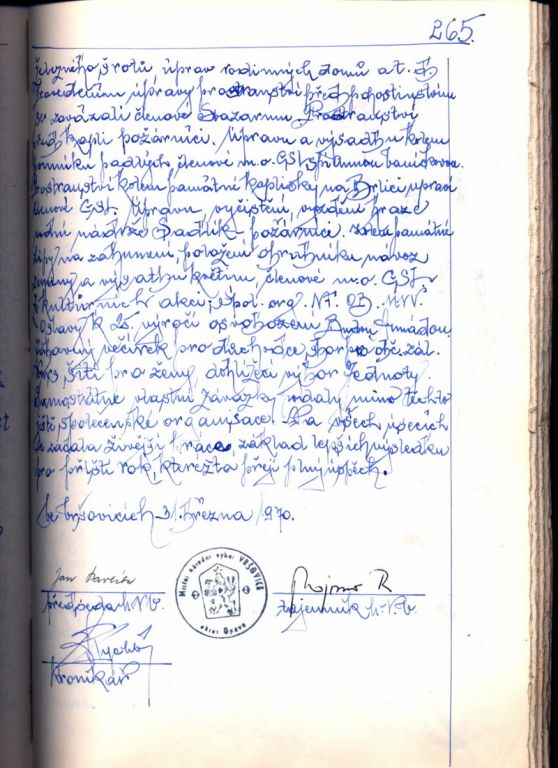 265.
železného šrotu, úprav rodinných domů a t. d.
úpravy prostranství před pohostinstvím
se zavázali členové Svazarmu. Prostranství
před kaplí požárníci. Úpravu a výsadbu kolem
pomníku padlých, členové m. o. ČSŽ,
Prostranství kolem památné kapličky na Brlici upraví
členové ČSŽ. Úpravu, vyčistění, hráze
vodní nádrže Sadlík požárníci. kolem památné
lípy na záhumení, položení obrubníku návoz
zeminy a výsadbu květin, členové m. o. ČSŽ,
Z kulturních akcí; spol. org. NF. OB. MNV.
Oslavy k 25. výročí osvobození Rudou Armádou.
večírek pro důchodce, sbor pro obč. zál.
Kurs šití pro ženy, dohlížecí výbor Jednoty.
Samostatné vlastní závazky vydaly mimo těchto
ještě společenské organisace. Na všech úsecích
se začala živější práce, základ lepších výsledku
pro příští rok, kterežta přeji plný úspěch.
Ve Vršovicích 31. Března 1970.
Místní národní výbor VRŠOVICE
okres Opava
Jan
předseda M.N.V.
R
tajemník M.N.V.
Rychlý
Kronikář